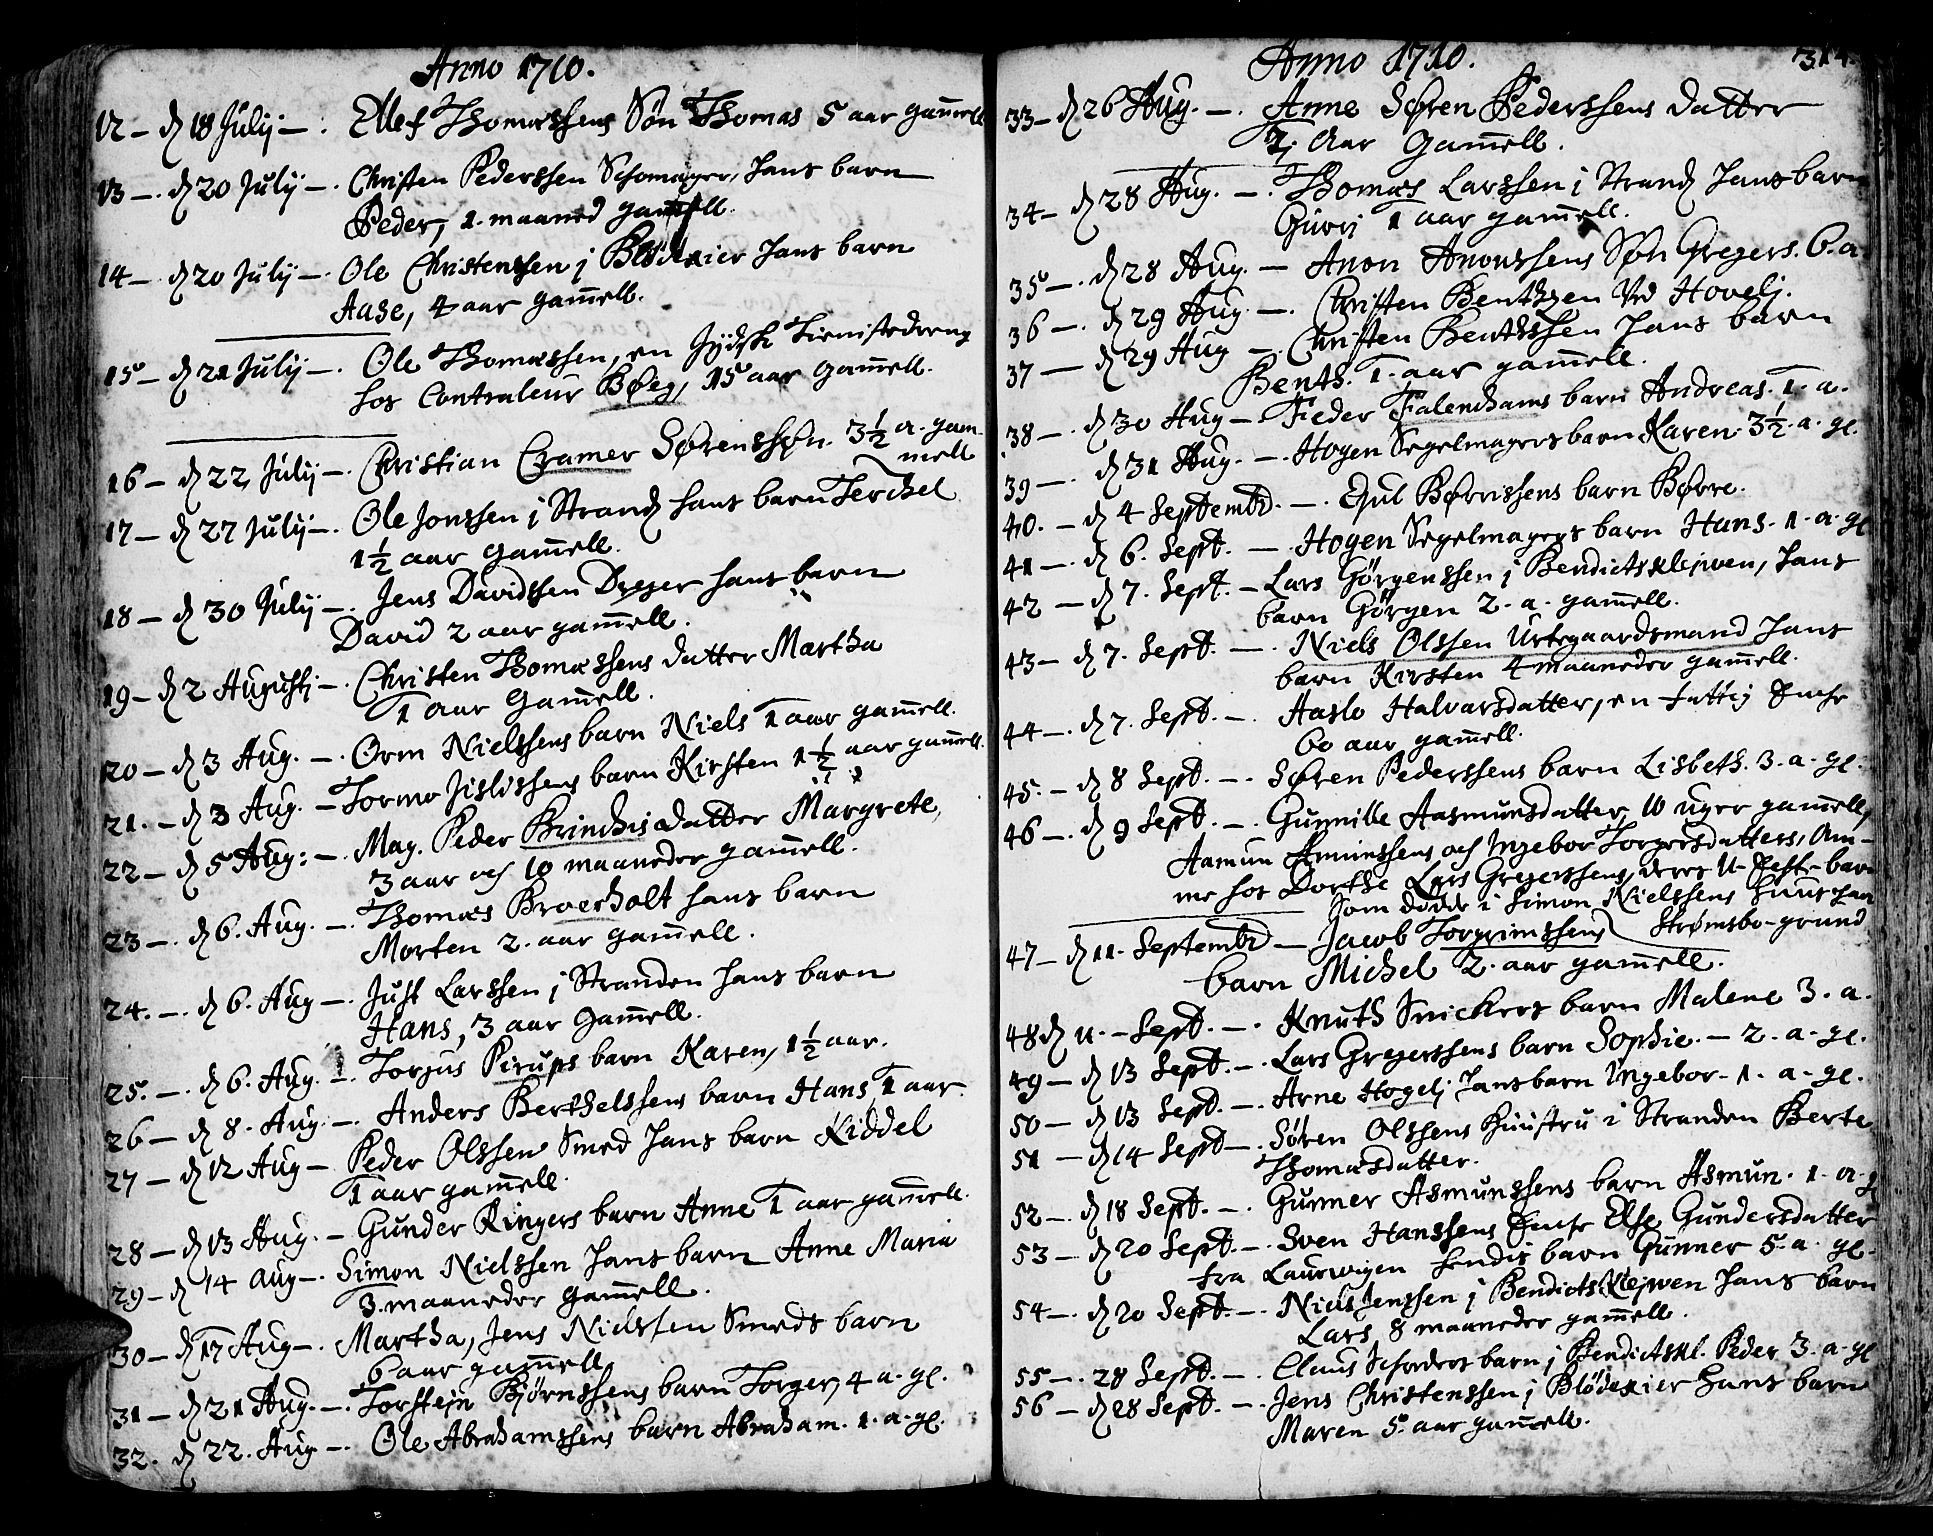 Anno 1710.
12 – d 18 Julij –. Ellef Thomæssens Søn Thomas 5 aar gam̄ell
13 –. d 20 July –. Christen Pederssen Schomager, hans barn
Peder, 1. maaned gammell.
14 –. d 20 July –. Ole Christenssen j Blödekier hans barn
Aase, 4 aar gam̄ell.
15 – d 21 Julij –. Ole Thomæssen, en Jydsk Tienistedreng
hos Contraleur Bøeg, 15 aar gam̄ell.
16 – d 22 Julij –. Christian Cramer Sørenssøn. 3½ a. gam-
mell
17 – d 27 Julij –. Ole Jonssen j Strand hans barn Terchel
1½ aar gam̄ell.
18 – d 30 Julij –. Jens Davidssen Dreyer hans barn
David 2 aar gam̄ell.
19 – d 2 Augustj –. Christen Thomæssens datter Martha
1 aar Gam̄ell.
20 – d 3 Aug. –. Orm Nielssens barn Niels 1 aar gam̄ell.
21. – d 3 Aug. – Tormo Jislissens barn Kirsten 1½ aar gam̄ell.
22 – d 5 Aug: –. Mag. Peder Brinchis datter Margrete,
3 aar och 10 maaneder gam̄ell.
23 –. d 6. Aug. –. Thomæs Broerholt hans barn
Morten 2. aar gam̄ell.
24. –. d 6. Aug –. Just Larssen j Stranden hans barn
Hans, 3 aar Gam̄ell.
25. –. d 6. Aug. –. Torjus Pirups barn Karen, 1½ aar.
26 – d 8. Aug. –. Anders Berthelssens barn Hans 1 aar.
27 – d 12 Aug – Peder Olssen Smed hans barn Kiddel
1 aar gam̄ell.
28 – d 13 Aug. – Gunder Ringers barn Anne 1 aar gam̄ell.
29 – d 14 Aug –. Simon Nielssen hans barn Anne Maria
3. maaneder gam̄ell.
30 – d 17 Aug –. Martha, Jens Nielssen Smeds barn
6 aar gam̄ell
31 – d 21 Aug. –. Torstejn Bjørnssens barn Torger, 4 a. gl.
32. d 22. Aug –. Ole Abrahamssens barn Abraham. 1. a. gl.
Anno 1710. 314.
33 – d 26 Aug. –. Anne Søren Pederssens datter
2. Aar Gam̄ell.
34 – d 28 Aug. –. Thomæs Larssen j Strand hans barn
Gurrj 1 aar gam̄ell.
35 –. d 28 Aug. – Anon Anonssens Søn Gregers. 6. a.
36 –. d 29 Aug. –. Christen Benthssen Ved Hovelj.
37 – d 29 Aug –. Christen Benthssen hans barn
Benth. 1. aar gam̄ell.
38 –. d 30 Aug – Feder Falenchams barn Andreas. 1. a.
39 –. d 31 Aug. –. Hogen Segelmagers barn Karen. 3½. a. gl.
40. – d 4 Septembr. –. Ejul Børrissens barn Børre.
41 –. d 6. Sept. –. Hogen Segelmagers barn Hans. 1. a. gl
42 – d 7. Sept. – Lars Görgenssen j Bendictsklejwen, hans
barn Görgen 2. a. gam̄ell.
43 – d 7. Sept. –. Niels Olssen Urtegaardsmand hans
barn Kirsten 4 maaneder gam̄ell.
44 –. d 7. Sept. –. Aaslo Halvarsdatter, en fattig Enche
60 aar gam̄ell.
45. – d 8 Sept. –. Søren Pederssens barn Lisbeth. 3. a. gl.
46 –. d 9 Sept. –. Gunnille Aasmunsdatter, 10 uger gam̄ell,
Aamun Amunssens och Ingebor Torgersdatters, Am-
me hos Dorthe Lars Gregerssens, deres U-Echte-barn
som døde i Simon Nielssens huus paa
Strømsboe-grund
47 – d 11. Septembr – Jacob Torgrimssens
barn Michel 2. aar gam̄ell.
48 d 11. – Sept. –. Knuth Snickers barn Malene 3. a.
49 – d 13 Sept. –. Lars Gregerssens barn Sophie. – 2. a. gl.
50 – d 13 Sept. –. Arne Hogelj hans barn Ingebor. 1. a. gl.
51 – d 14 Sept –. Søren Olssens Huustru i Stranden Berte
Thomæsdatter.
52 –. d 18 Sept. –. Gunner Asmunssens barn Asmun. 1. a. g
53 – d 20 Sept. –. Sven Hanssens Enche Else Gundersdatter
fra Laurwigen hendis barn Gunner 5. a. gl.
54 –. d 20 Sept. –. Niels Jenssen j Bendictsklejwen hans barn
Lars 8 maaneder gam̄ell.
55 –. 28 Sept. –. Claus barn j Bendictskl. Peder 3. a. gl
56 – d 28 Sept. –. Jens Christenssen j Blödekier hans barn
Maren 5. aar gam̄ell.